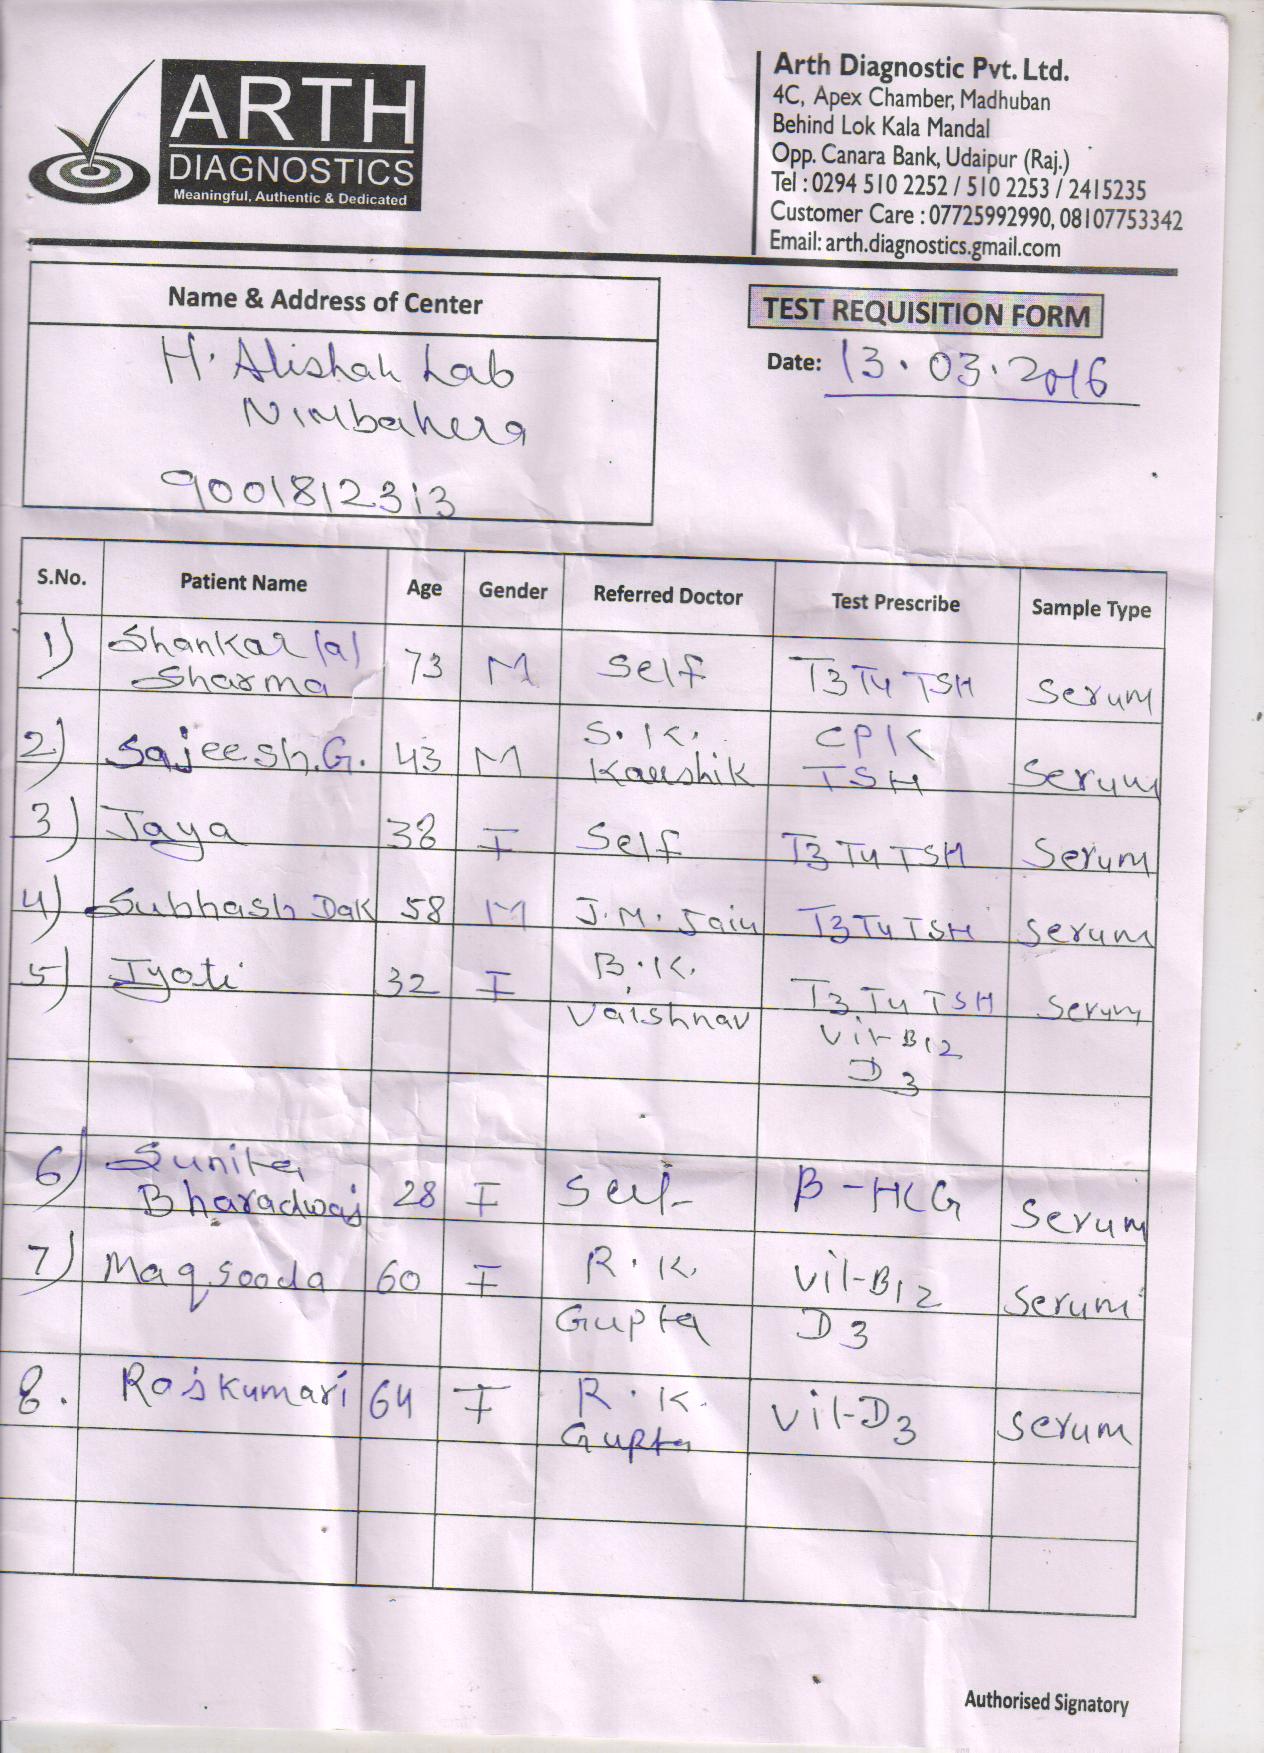 ARTH
DIAGNOSTICS
Meaningful, Authentic & Dedicated
Arth Diagnostic Pvt. Ltd.
4C, Apex Chamber, Madhuban
Behind Lok Kala Mandal
Opp. Canara Bank, Udaipur (Raj.)
Tel : 0294 510 2252 / 510 2253 / 2415235
Customer Care : 07725992990, 08107753342
Email: arth.diagnostics.gmail.com
Name & Address of Center
H. Alishah Lab
Nimbahera
9001812313
TEST REQUISITION FORM
Date: 13.03.2016
S.No. Patient Name Age Gender Referred Doctor Test Prescribe Sample Type
1) Shankar lal Sharma 73 M Self T3 T4 TSH Serum
2) Sajeesh.G. 43 M S.K. Kaushik CPK TSH Serum
3) Jaya 38 F Self T3 T4 TSH Serum
4) Subhash Dak 58 M J.M. Jain T3 T4 TSH Serum
5) Jyoti 32 F B.K. Vaishnav T3 T4 TSH Serum
Vit-B12
D3
6) Sunita Bharadwaj 28 F Self B-HCG Serum
7) Maqsooda 60 F R.K. Gupta Vit-B12 D3 Serum
8. Rajkumari 64 F R.K. Gupta Vit-D3 Serum
Authorised Signatory